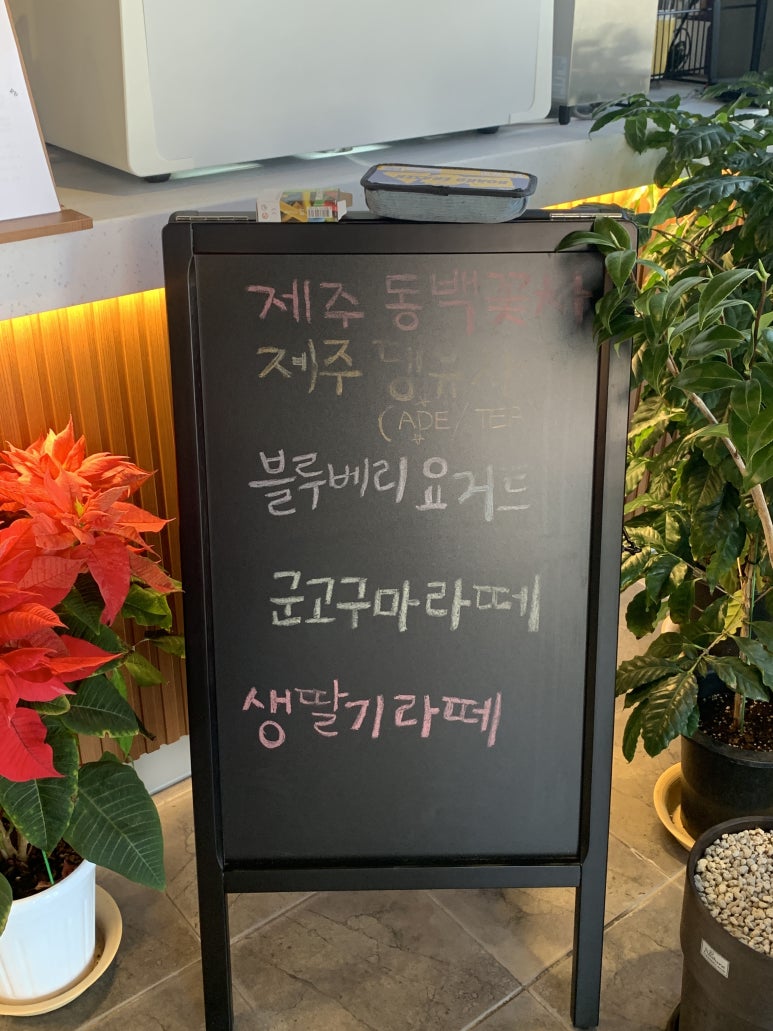 제주 동백꽃차
제주 댕유자
(ADE/TEA
블루베리 요거트
군고구마라떼
생딸기라떼